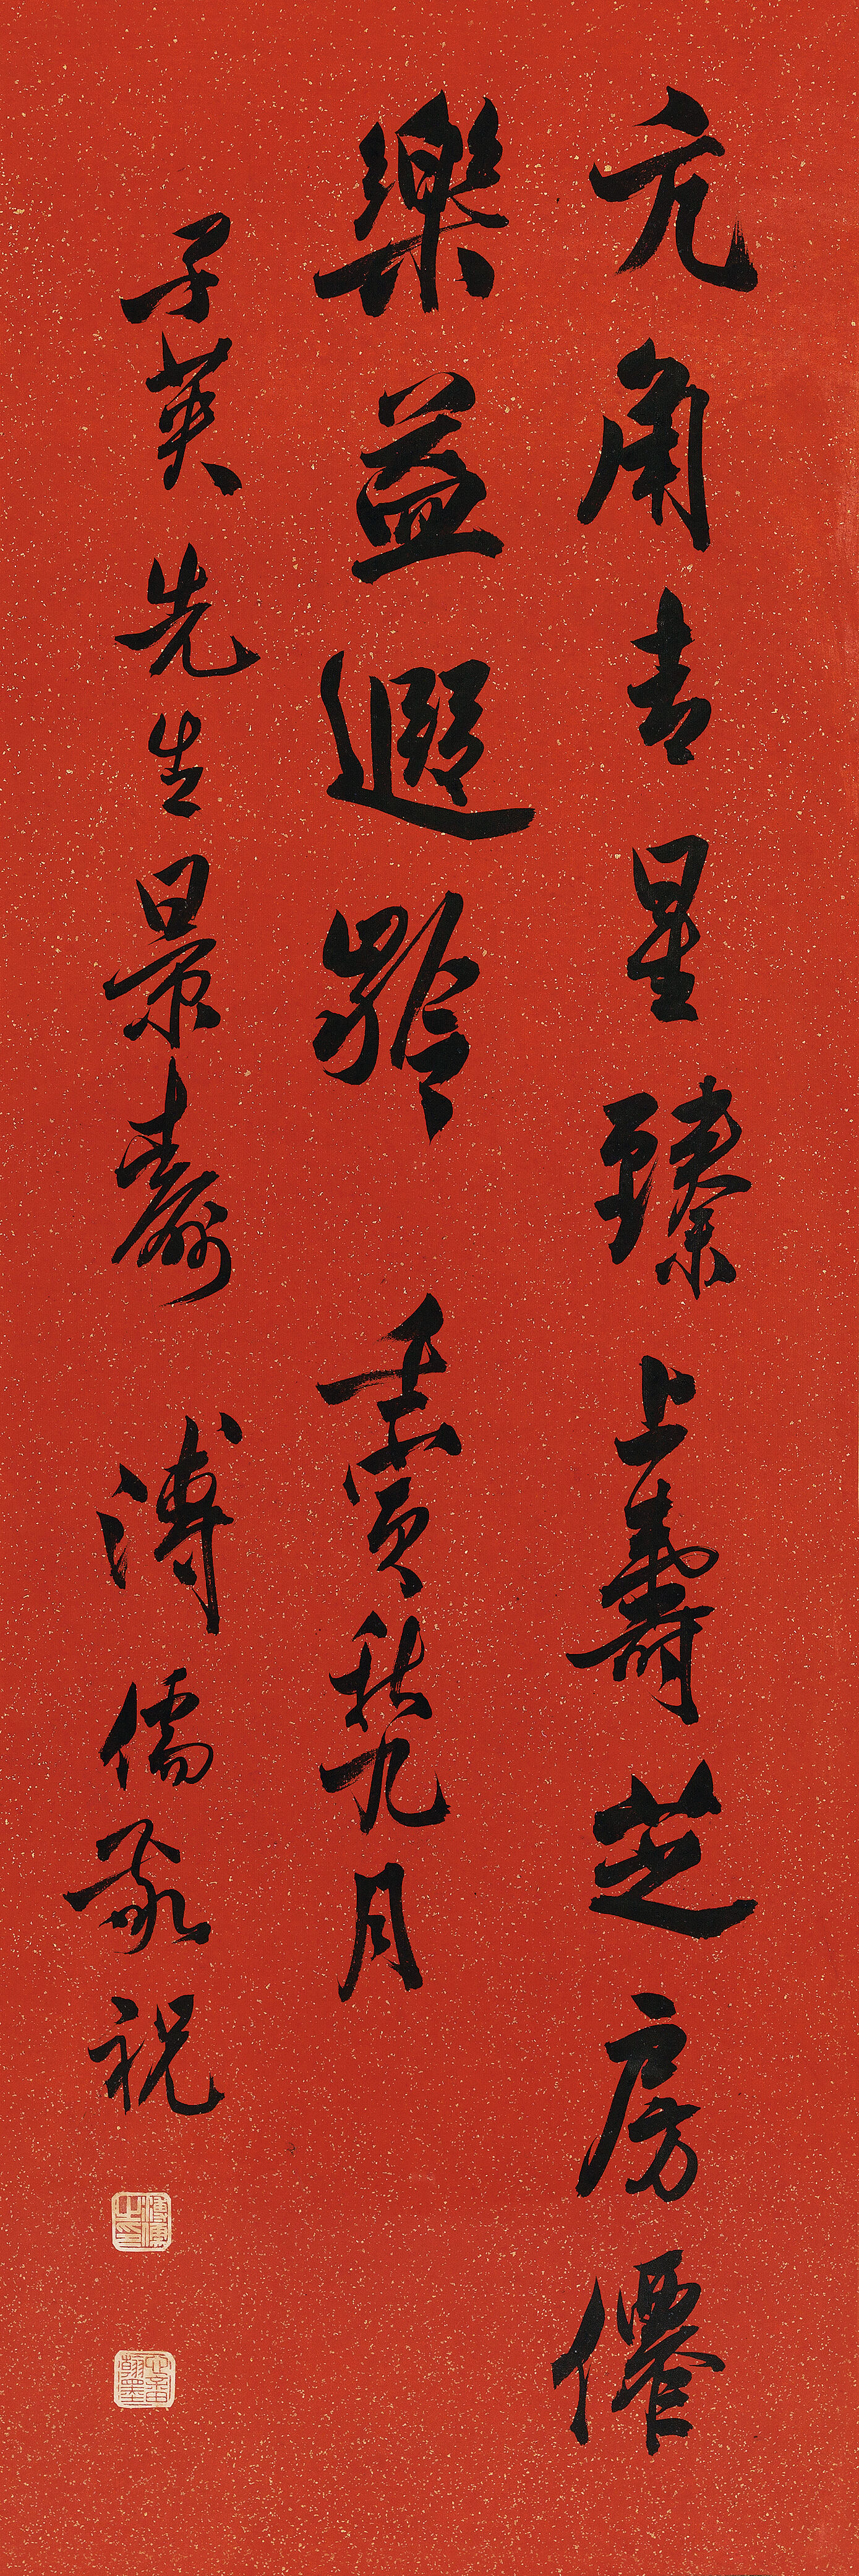 亢角吉星臻上壽芝房僊
樂益遐齡　壬寅秋九月
子英先生景壽　溥儒敬祝
溥儒之印